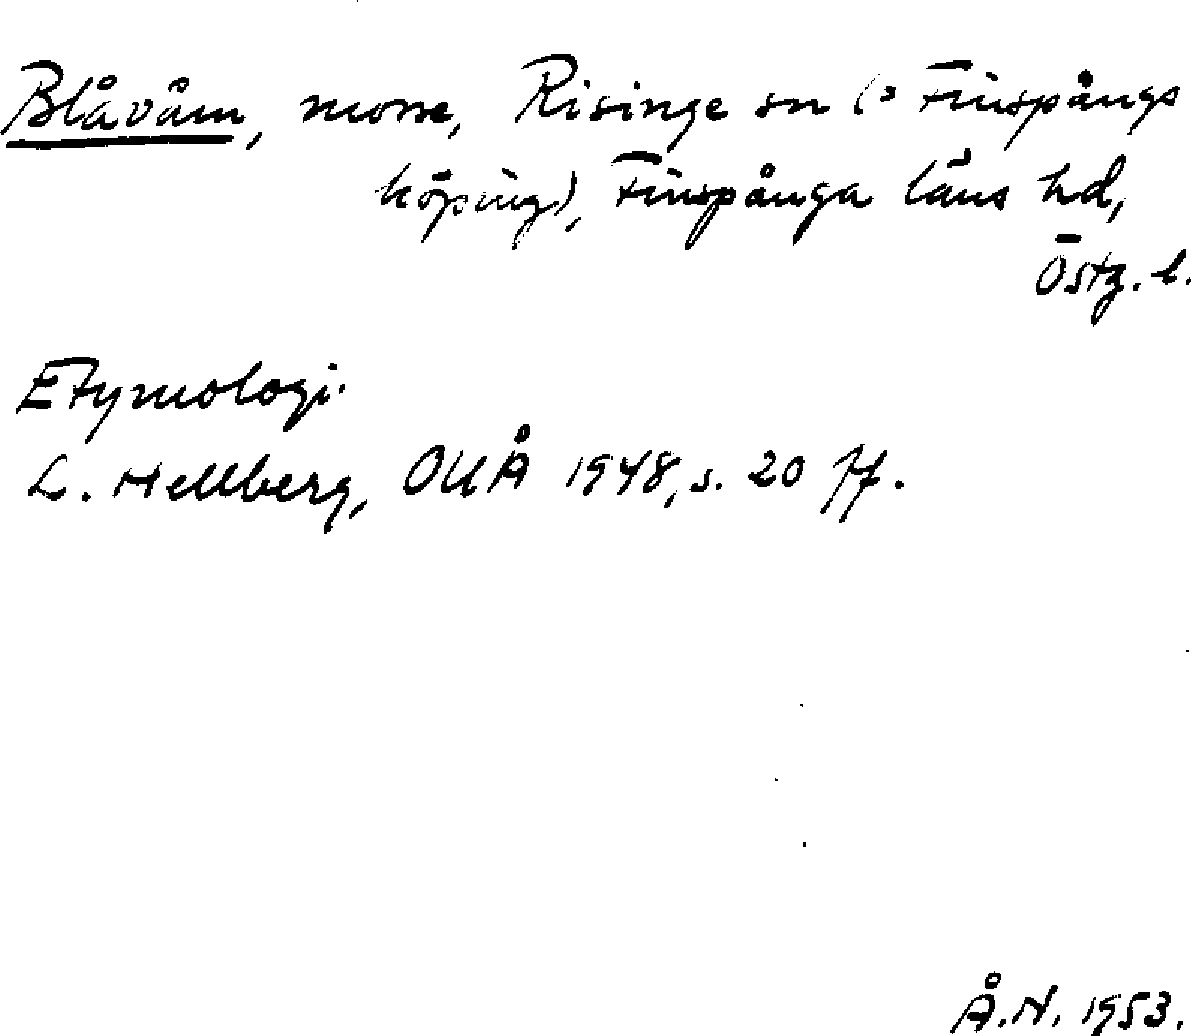 Blåvåm, mosse, Risinge sn (: Finspångs
köping), Finspånga läns hd,
Östg. l.
Etymologi.
L. Hellberg, OUÅ 1948, s. 20 ff.
Å.N. 1953.